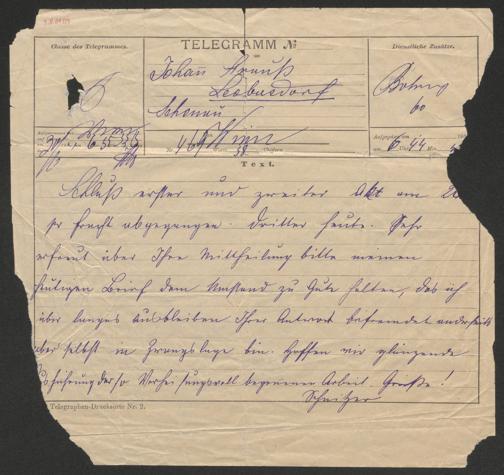 Classe des Telegrammes.
TELEGRAMM №
Dienstliche Zusätze.
Johann Strauß
Leobersdorf
Schönau
Boten
60
Wien
6 44
Text.
Schluß erster und zweiter Akt am 2
per Fracht abgegangen. Dritter heute. Sehr
erfreut über Ihre Mittheilung bitte meinen
heutigen Brief dem Umstand zu Gute halten, das ich
über langes Ausbleiben Ihrer Antwort befremdet anderseits
aber selbst in Zwangslage bin. Hoffen wir glänzende
Ausführung der so Verheisungsvoll begonnenen Arbeit. Grüße!
Schnitzer
Telegraphen-Drucksorte Nr. 2.